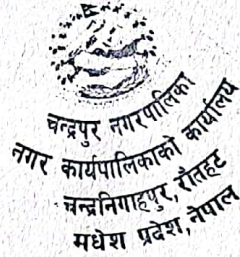 चन्द्रपुर नगरपालिका
नगर कार्यपालिकाको कार्यालय
चन्द्रनिगाहपुर, रौतहट
मधेश प्रदेश, नेपाल